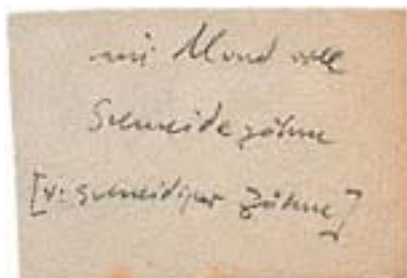 ein Mund voll
Schneidezähne
[v: schneidiger Zähne]